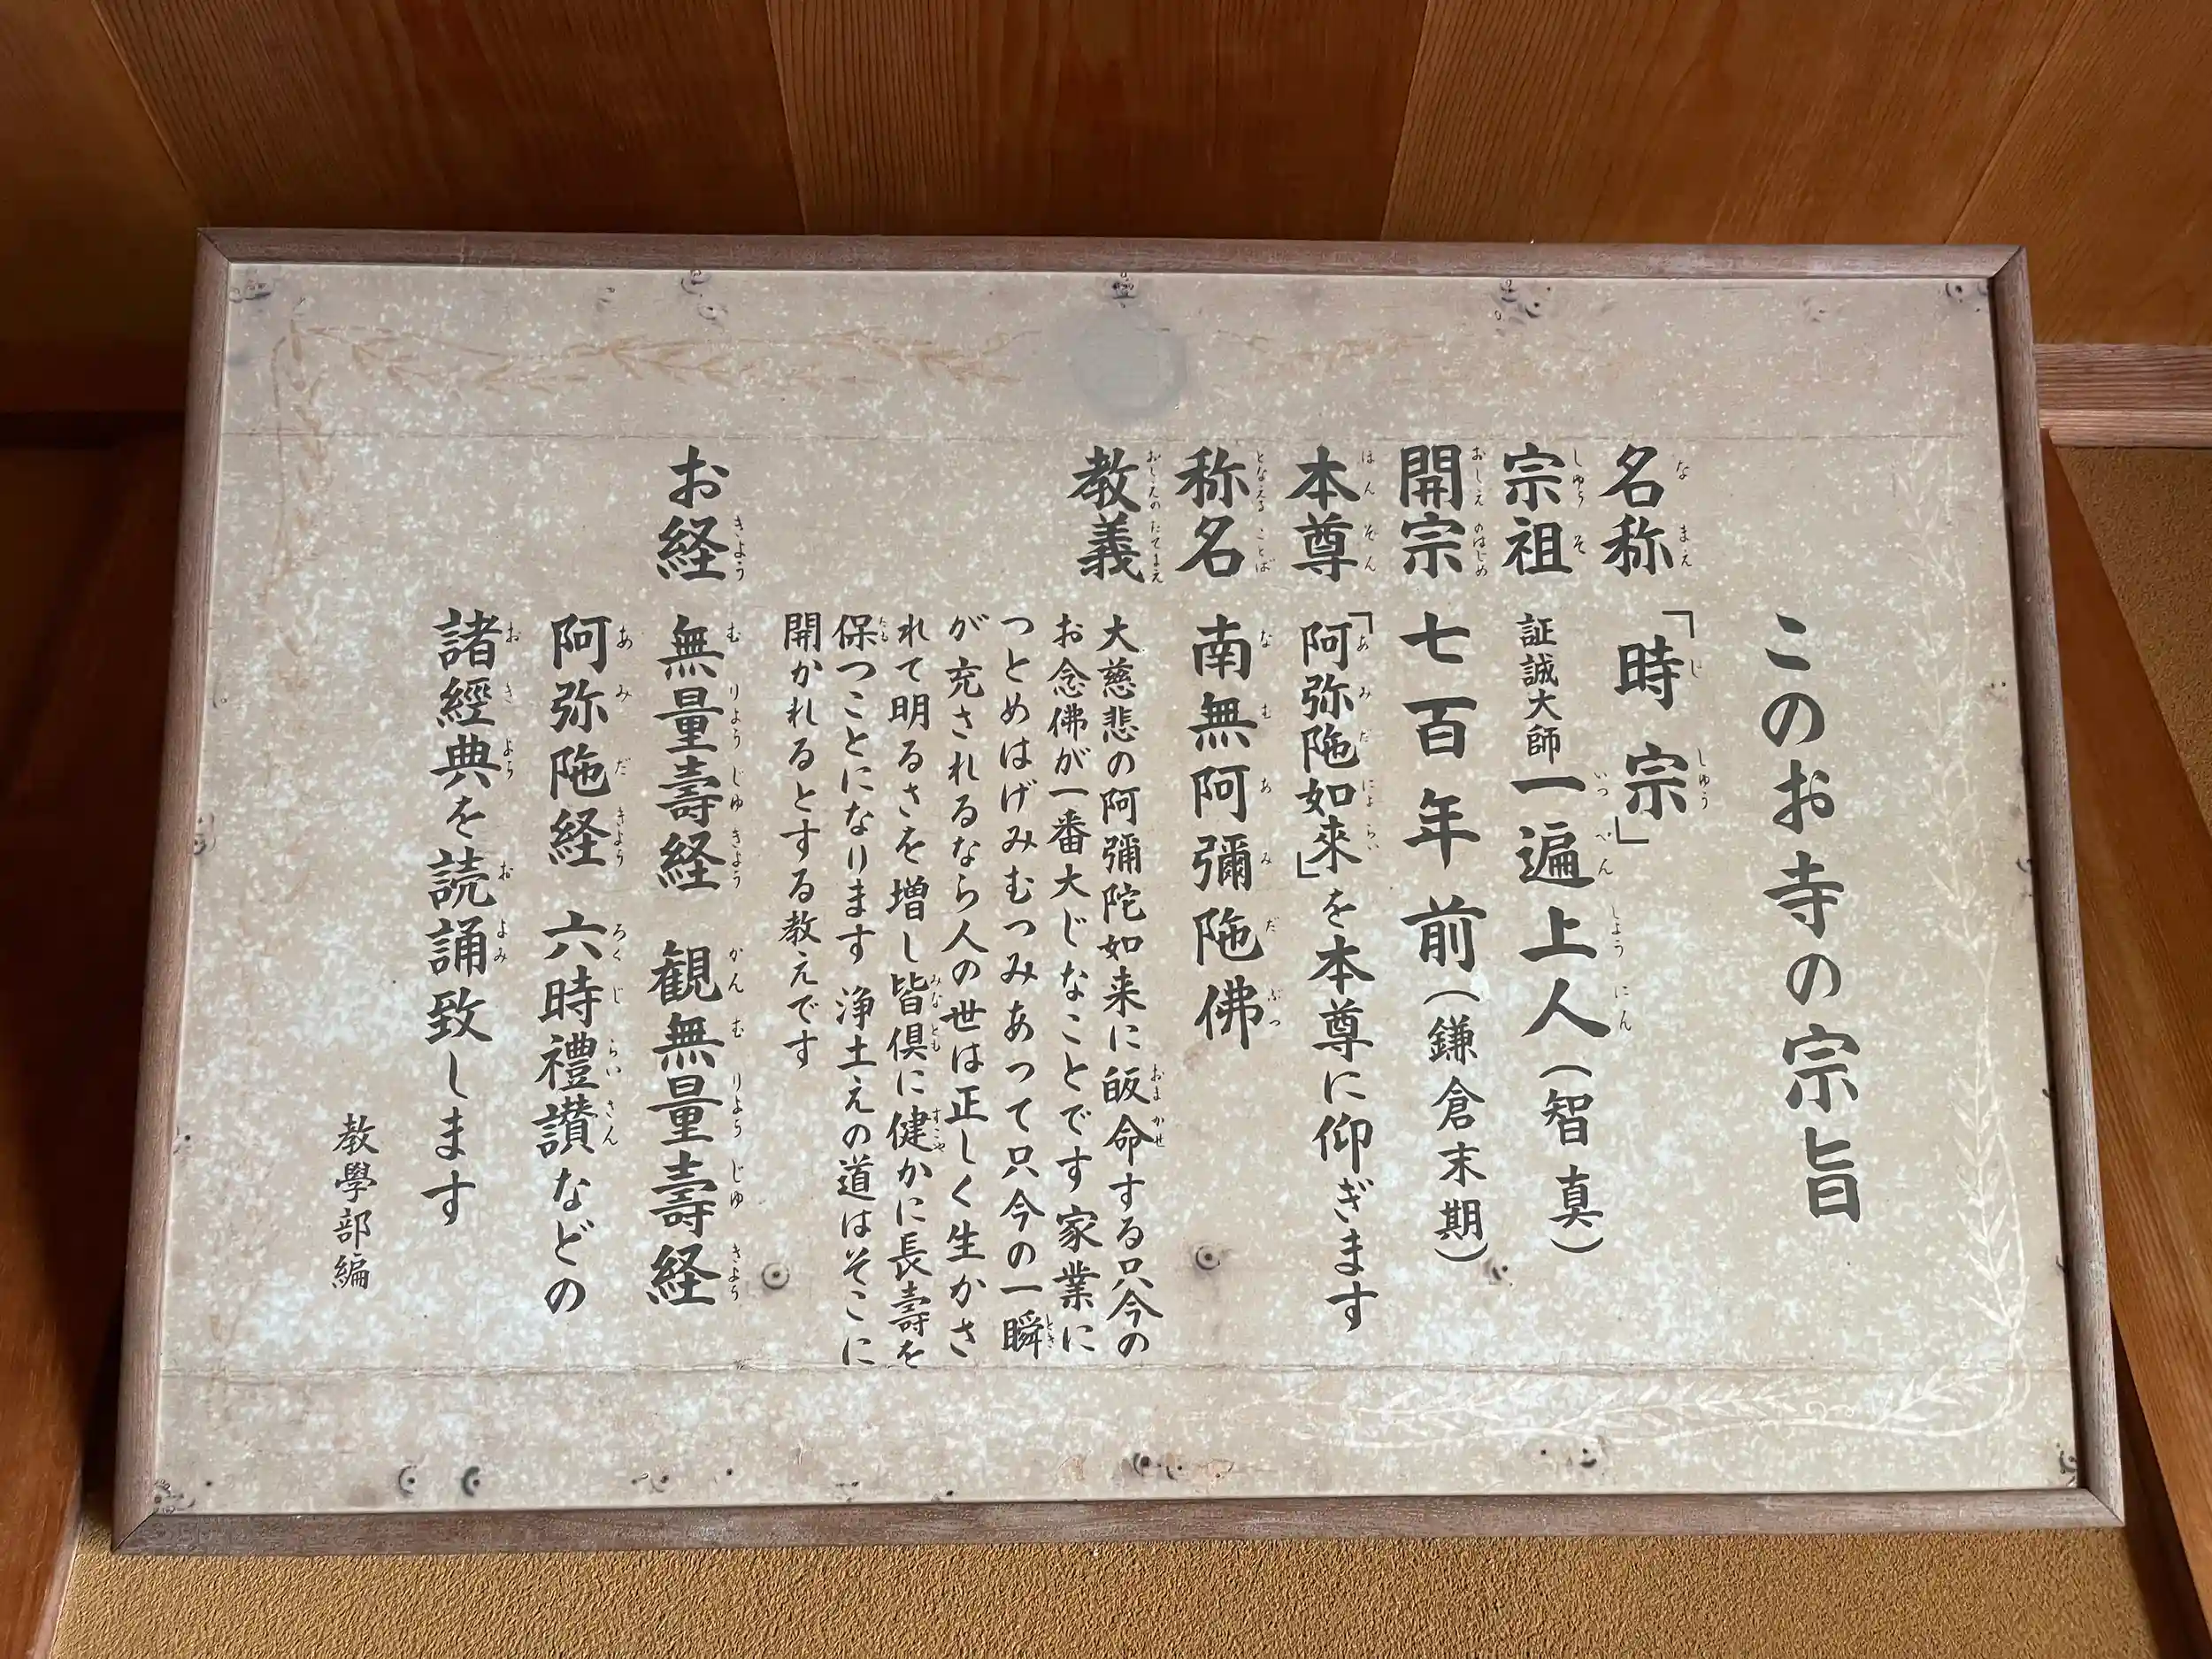 このお寺の宗旨
名称 「時宗」
宗祖 証誠大師 一遍上人（智真）
開宗 七百年前（鎌倉末期）
本尊 「阿弥陁如来」を本尊に仰ぎます
称名 南無阿彌陁佛
教義 大慈悲の阿彌陀如来に皈命する只今の
お念佛が一番大じなことです家業に
つとめはげみむつみあって只今の一瞬
が充されるなら人の世は正しく生かさ
れて明るさを増し皆倶に健かに長壽を
保つことになります 浄土えの道はそこに
開かれるとする教えです
お経 無量壽経 観無量壽経
阿弥陁経 六時禮讃などの
諸經典を読誦致します
教學部編